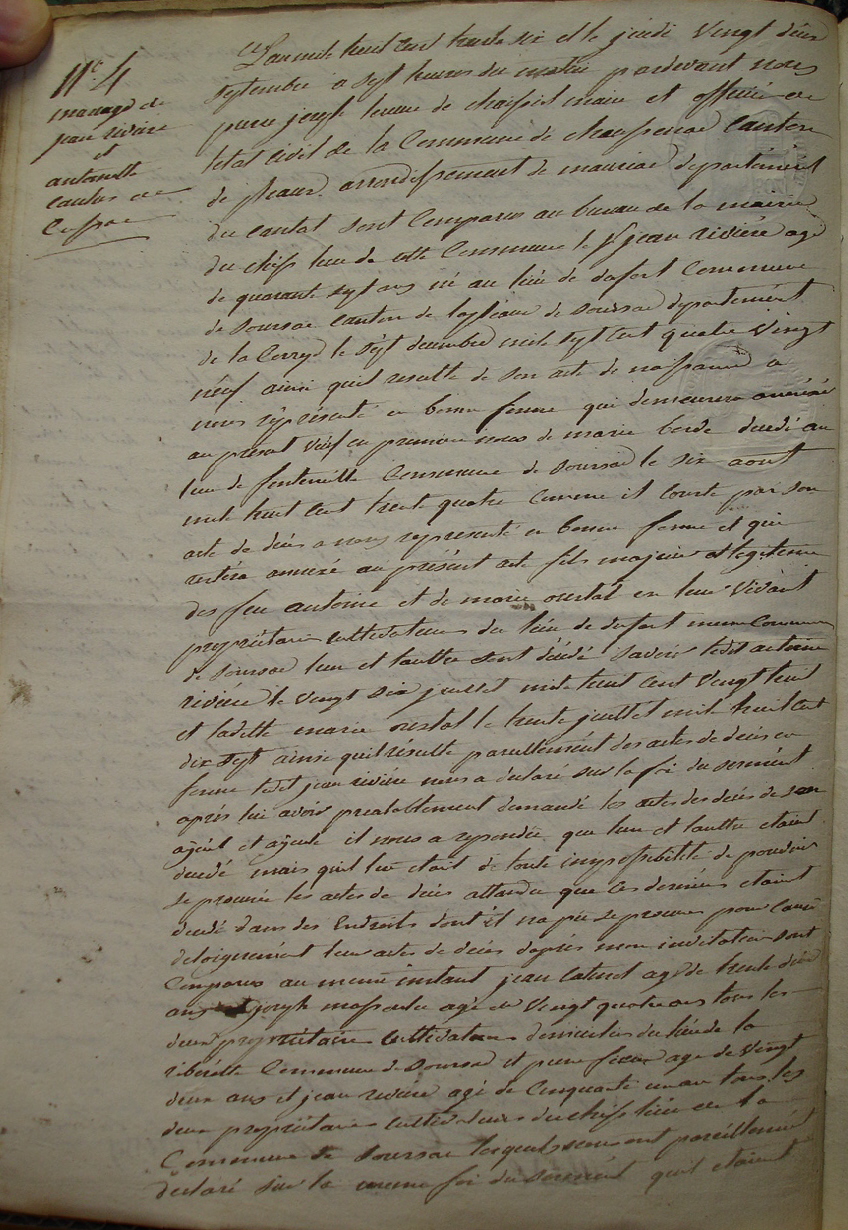 N° 4
mariage de
jean riviere
et
antoinette
L'an mil huit cent trente six et le jeudi vingt deux
septembre a sept heures du matin pardevant nous
pierre joseph maire et officier de
letat civil de la Commune de chaussenac canton
de pleaux arrondissement de mauriac departement
du cantal sont Comparus au bureau de la mairie
du chef lieu de cette Commune le Sr jean rivière agé
de quarante sept ans né au lieu de Commune
de Soursac canton de lapleau de Soursac departement
de la Correze le sept decembre mil sept cent quatre vingt
neuf ainsi quil resulte de son acte de naissance a
nous représenté en bonne forme qui demeurera annéxé
au present veuf en premiere noces de marie borde decedé au
lieu de Commune de Soursac le six aout
mil huit cent trente quatre comme il conste par son
acte de décès a nous representé en bonne forme et qui
restera annéxé au présent acte fils majeur et legitime
des feu antoine et de marie oustal en leur vivant
propriétaires cultivateurs du lieu de meme Commune
de Soursac lun et lautre sont décédé savoir ledit antoine
rivière le vingt six juillet mil huit cent vingt huit
et ladette marie oustal le trente juillet mil huit cent
dix sept ainsi quil résulte pareillement des actes de décès en
forme ledit jean rivière nous a declaré sur la foi du serment
après lui avoir prealablement demandé les actes des décès de son
ayeul et ayeule il nous a repondu que lun et lautre etaient
decedé mais quil lui etait de toute impossibilité de pouvoir
se procurer les actes de décès attandu que ces derniers etaient
decedé dans des Endroits dont il na pu se procurer pour cause
deloignement leur actes de décès daprès mon invitation sont
Comparus au meme instant jean agé de trente deux
ans joseph agé de vingt quatre ans tous les
deux propriétaire cultivateurs domicilies du lieu de la
Commune de Soursac et pierre agé de vingt
deux ans et jean riviere agé de Cinquante un an tous les
deux propriétaires cultivateurs du chef lieu de la
Commune de Soursac lesquels nous ont pareillement
declaré sur la meme foi du serment quil etaient